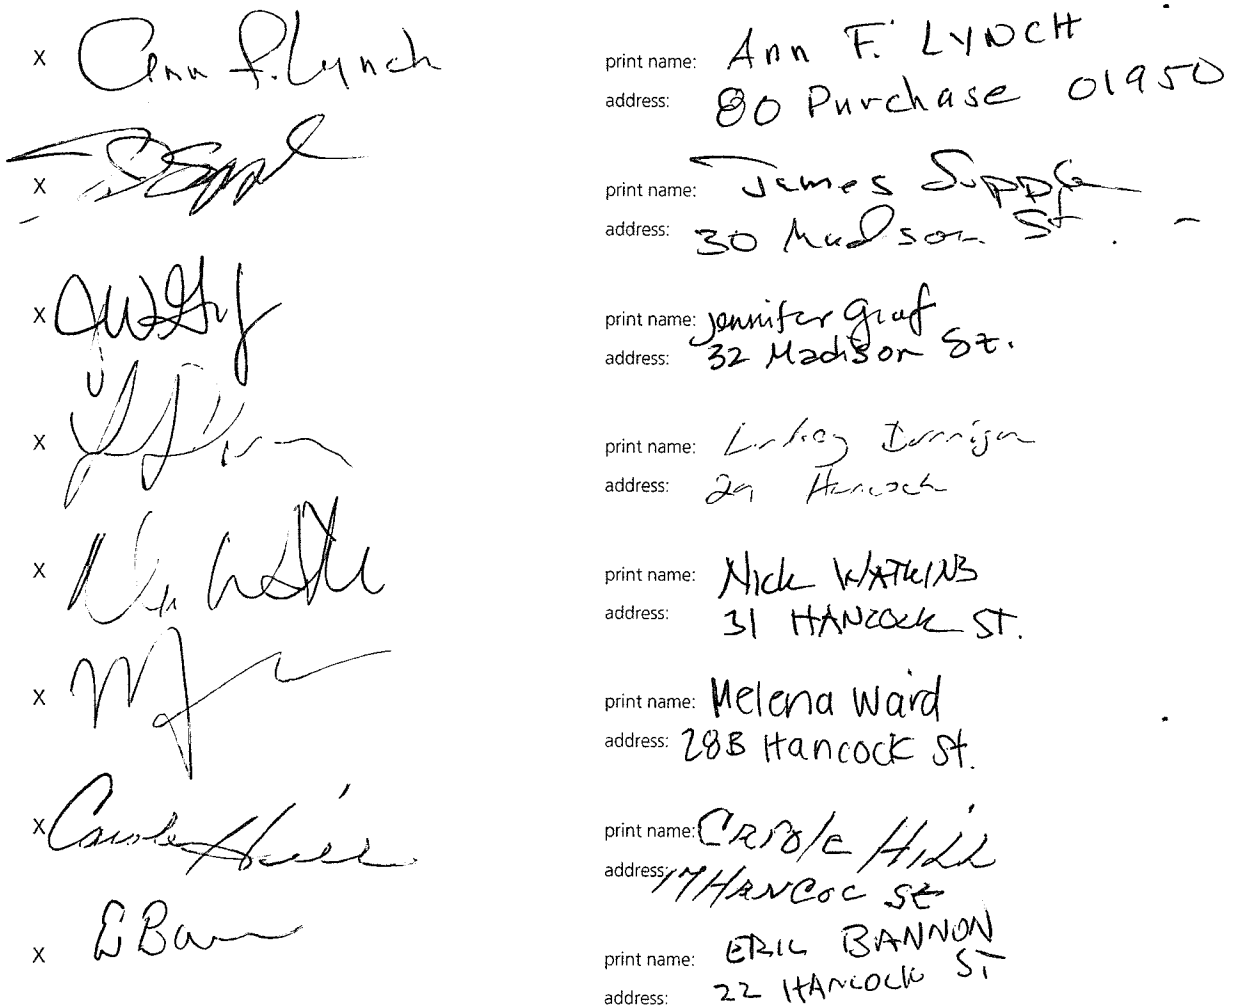 X Ann F. Lynch
print name: Ann F. LYNCH
address: 80 Purchase 01950
X
print name: James Supple
address: 30 Madison St.
X
print name: Jennifer Graf
address: 32 Madison St.
X
print name: Lindsay Dorrigan
address: 29 Hancock
X
print name: Nick WATKINS
address: 31 HANCOCK ST.
X
print name: Melena Ward
address: 28B Hancock St.
X Carole Hill
print name: CAROLE HILL
address: 17 HANCOC St
X E Bann
print name: ERIC BANNON
address: 22 HANCOCK ST